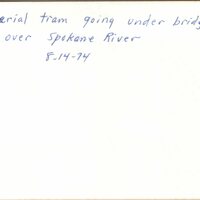 arial tram going under bridg
over Spokane River
8-14-74